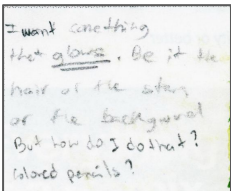 I want something
that glows. Be it the
hair or the stars
or the background
But how do I do that?
Colored pencils?